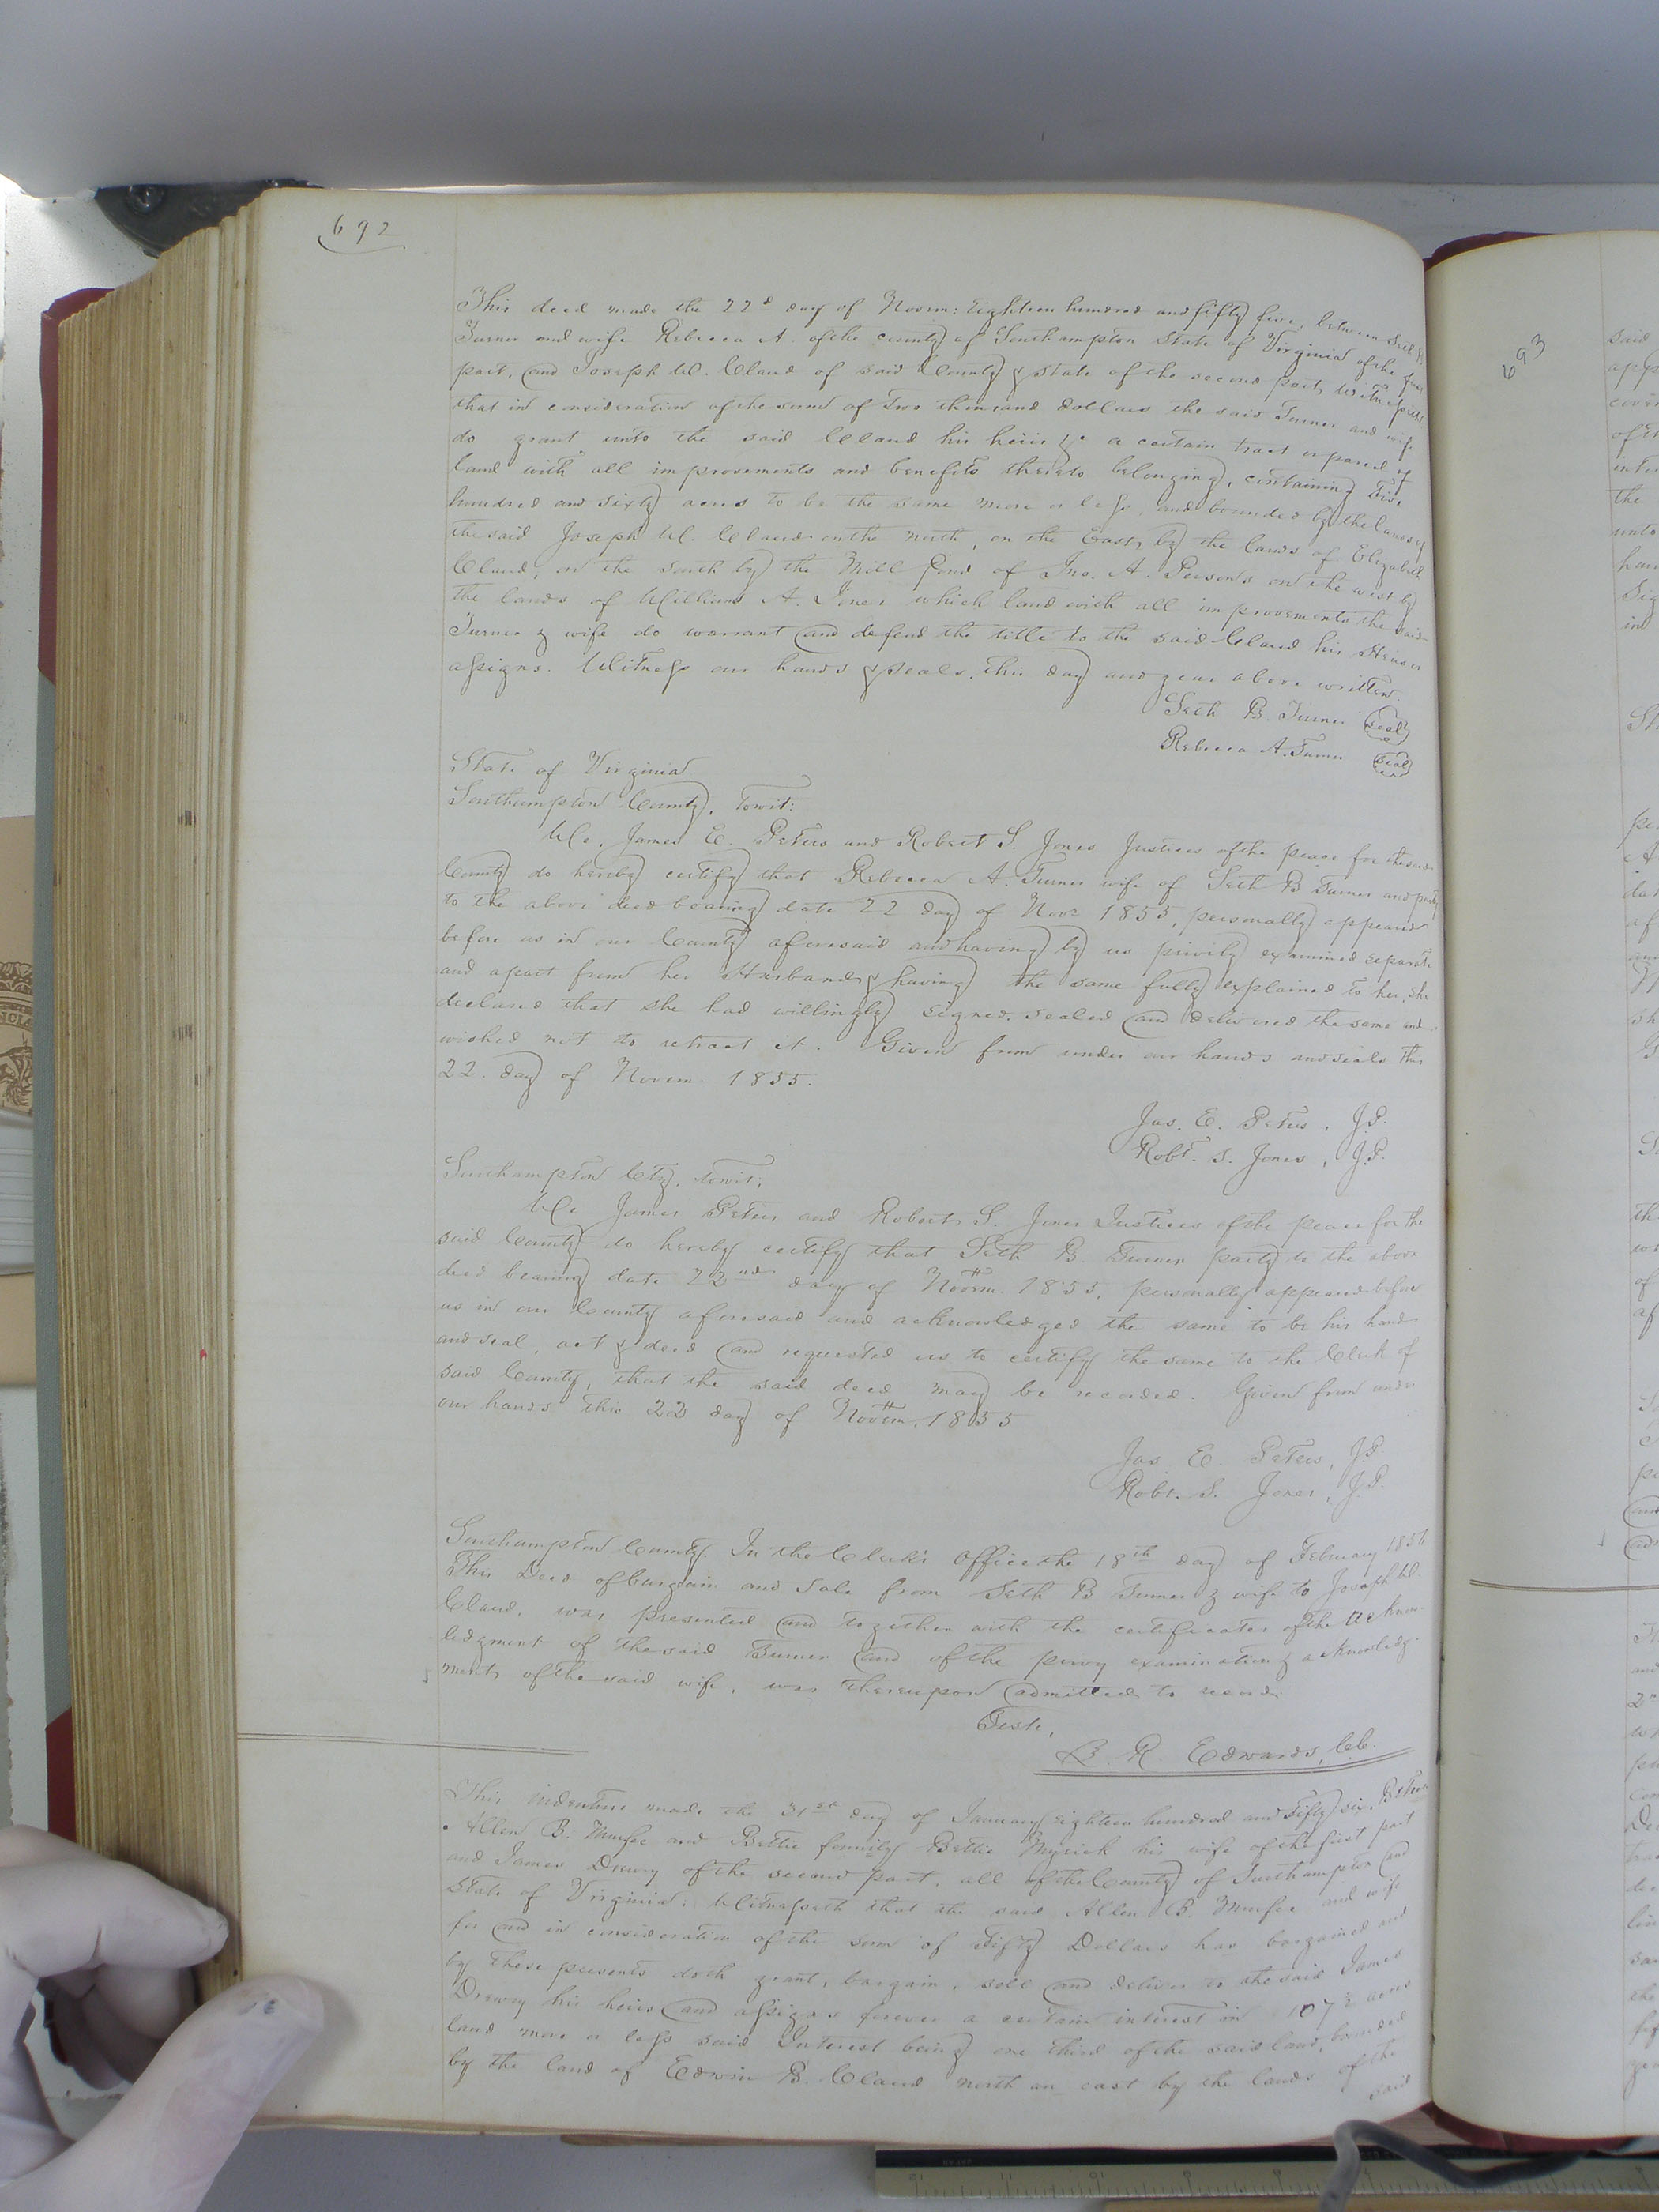 692
This deed made the 22d day of Novem: Eighteen hundred and fifty five, between Seth B.
Turner and wife Rebecca A. of the county of Southampton State of Virginia of the first
part, and Joseph W. Claud of said County & State of the second part, Witnesseth
that in consideration of the sum of Two thousand Dollars the said Turner and wife
do grant unto the said Claud his heirs &c a certain tract or parcel of
land with all improvements and benefits thereto belonging, containing Five
hundred and sixty acres to be the same more or less, and bounded by the lands of
the said Joseph W. Claud on the north, on the East, by the lands of Elizabeth
Claud, on the south by the Mill Pond of Jno. A. Persons on the west by
the lands of William A. Jones which land with all improvements the said
Turner & wife do warrant and defend the title to the said Claud his Heirs or
assigns. Witness our hands & seals, this day and year above written.
Seth B. Turner Seal
Rebecca A. Turner Seal
State of Virginia
Southampton County, towit:
We, James E. Peters and Robert S. Jones Justices of the peace for the said
County do hereby certify that Rebecca A. Turner wife of Seth B Turner and party
to the above deed bearing date 22 day of Novr 1855, personally appeared
before us in our County aforesaid and having by us privily examined separate
and apart from her Husband & having the same fully explained to her, she
declared that she had willingly signed, sealed and delivered the same and
wished not to retract it. Given from under our hands and seals this
22. day of Novem. 1855.
Jas. E. Peters, J.P.
Robt. S. Jones, J.P.
Southampton Cty, towit;
We James Peters and Robert S. Jones Justices of the peace for the
said County do hereby certify that Seth B. Turner party to the above
deed bearing date 22nd day of Novem. 1855, personally appeared before
us in our County aforesaid and acknowledged the same to be his hand
and seal, act & deed and requested us to certify the same to the Clerk of
said County, that the said deed may be recorded. Given from under
our hands this 22 day of Novem. 1855
Jas. E. Peters, J.P.
Robt. S. Jones, J.P.
Southampton County. In the Clerk's Office the 18th day of February 1856
This Deed of bargain and sale from Seth B Turner & wife to Joseph W.
Claud, was presented and together with the certificates of the acknow-
ledgment of the said Turner and of the privy examination & acknowledg-
ment, of the said wife, was thereupon admitted to record.
Teste,
L. R. Edwards, C.C.
This indenture made the 31st day of January Eighteen hundred and Fifty six, Between
Allen B. Murfee and Bettie formily Bettie Myrick his wife of the first part
and James Drewry of the second part, all of the County of Southampton and
State of Virginia. Witnesseth that the said Allen B. Murfee and wife
for and in consideration of the sum of Fifty Dollars has bargained and
by these presents doth grant, bargain, sell and deliver to the said James
Drewry his heirs and assigns forever a certain interest in 107 acres
land more or less said Interest being one third of the said land, bounded
by the land of Edwin B. Claud north an east by the lands of the
said
693
said
of th
the
unto